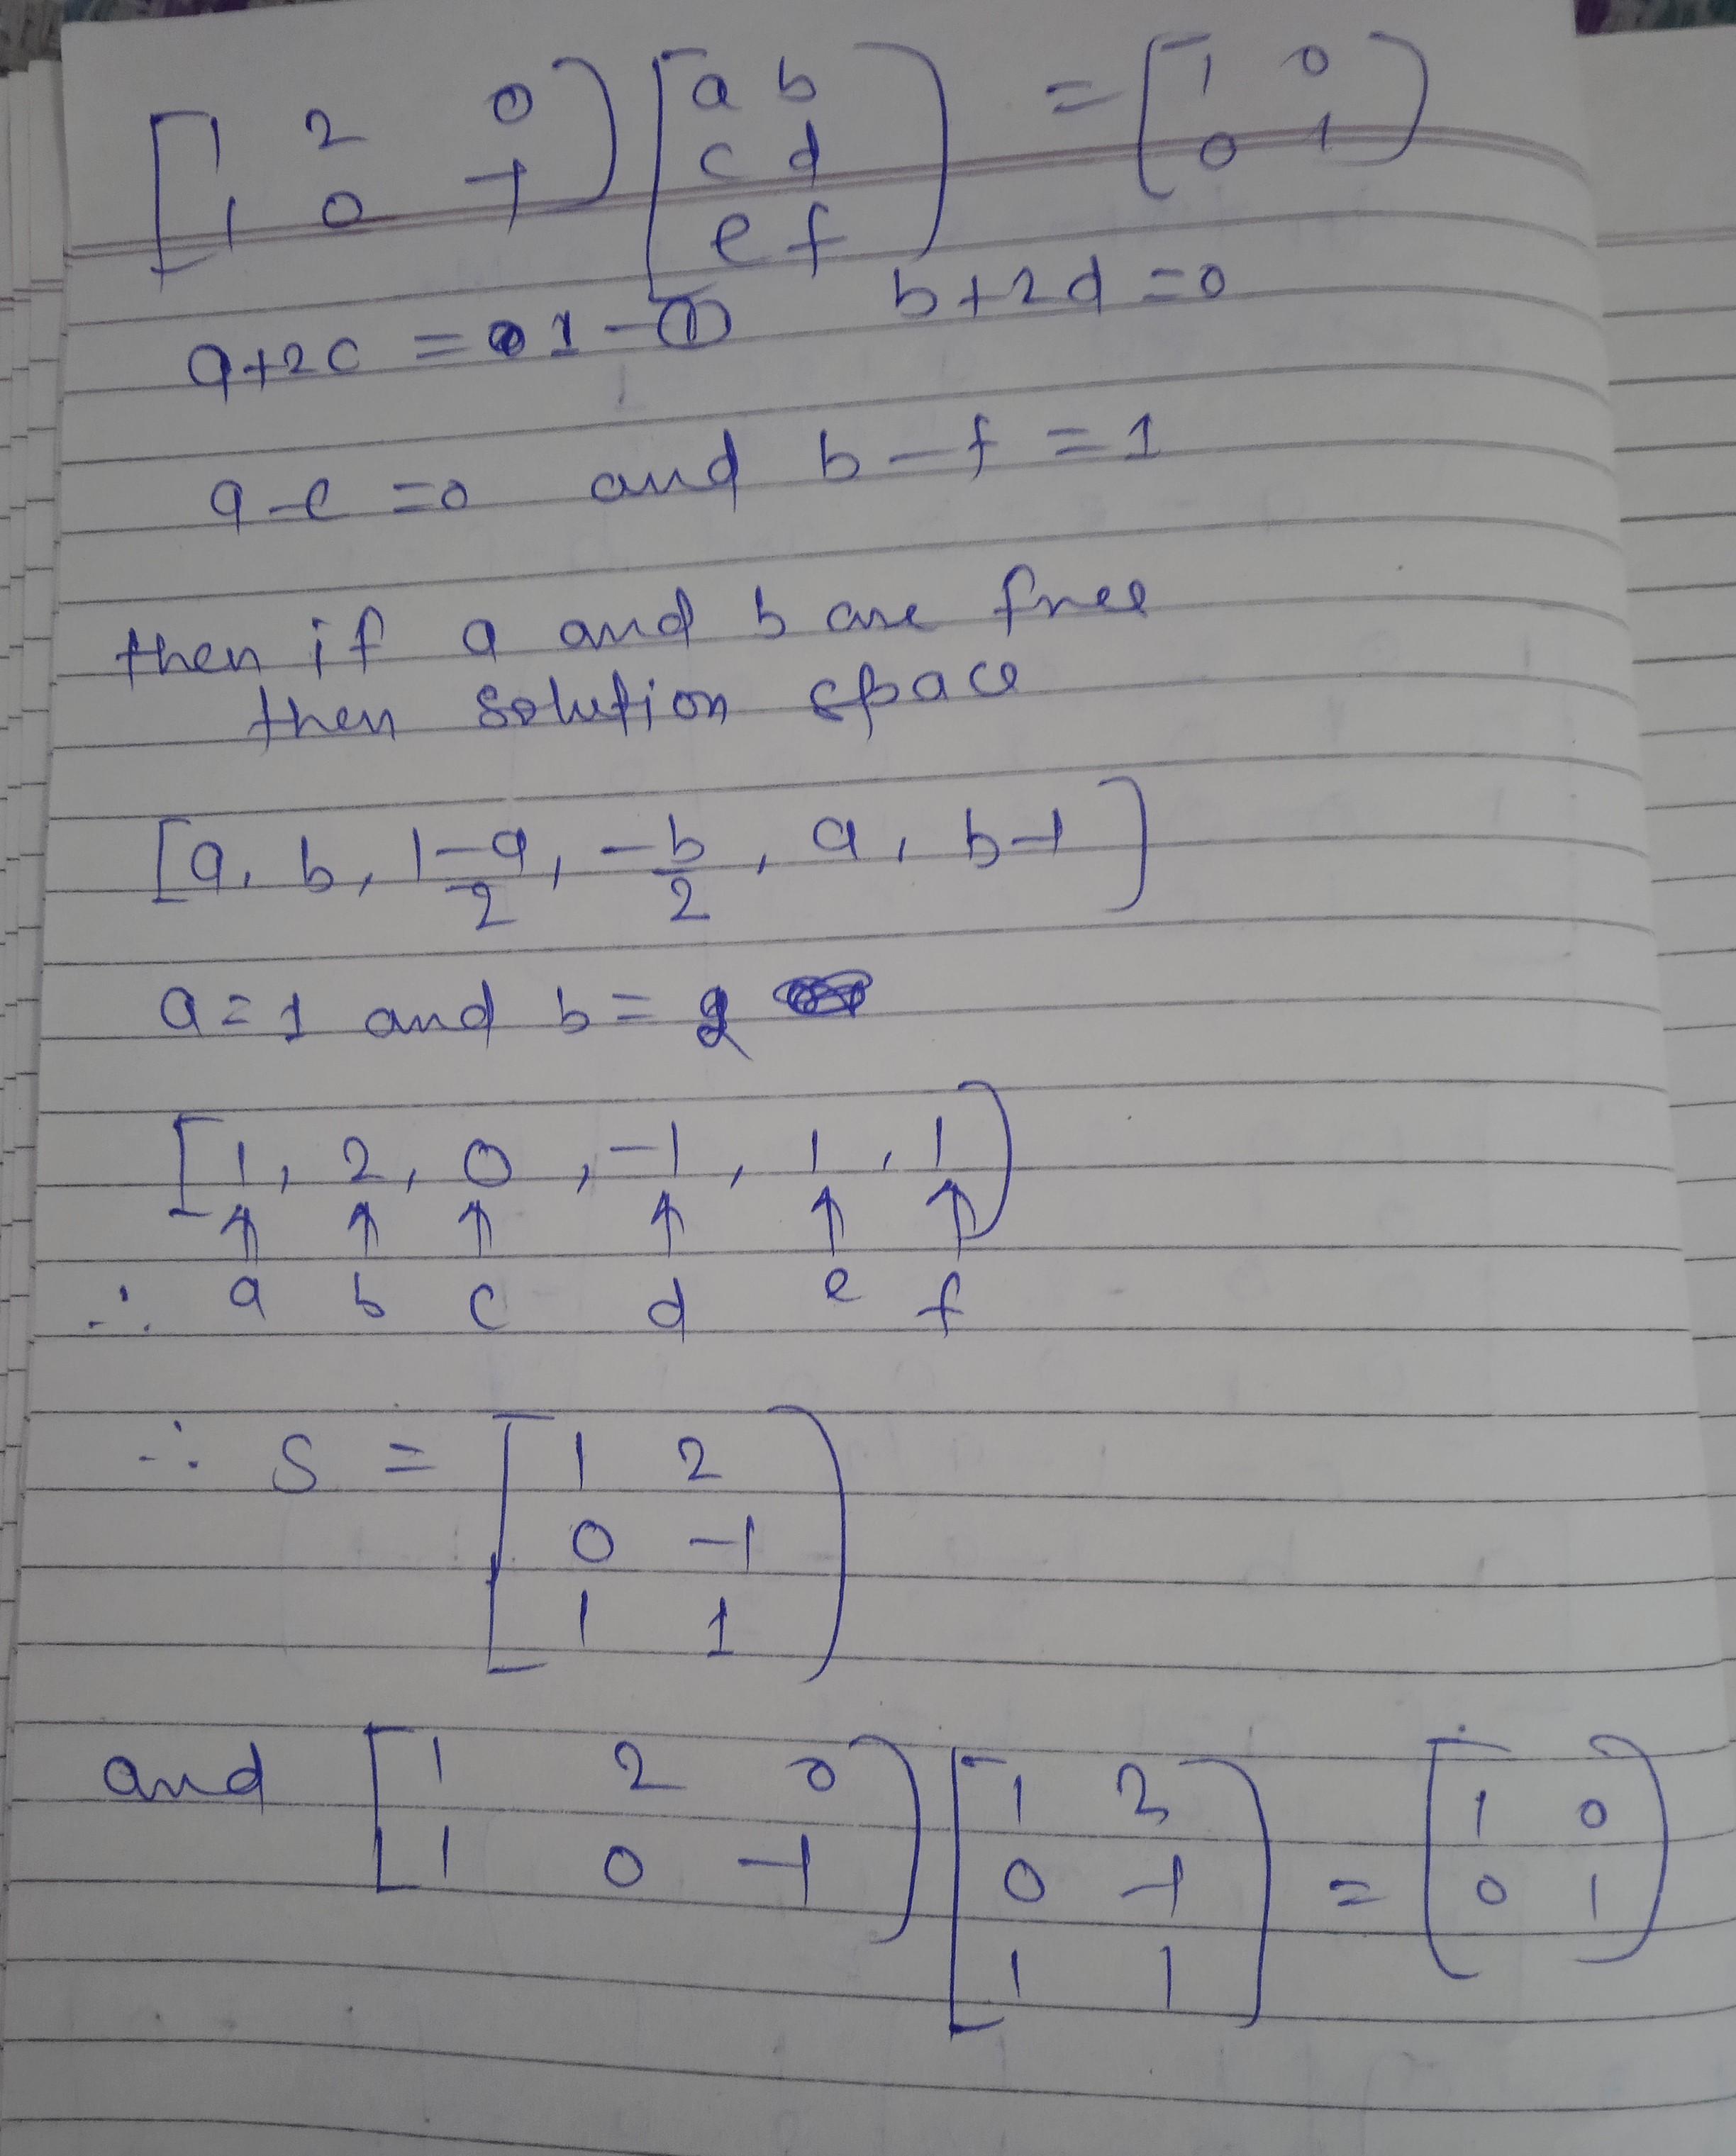 [1 2 0 [a b = [1 0
1 0 -1] c d 0 1]
e f]
a+2c = 1 - ① b+2d = 0
a-e = 0 and b-f = 1
then if a and b are free
then solution space
[a, b, 1-a/2, -b/2, a, b-1]
a = 1 and b = 2
[1, 2, 0, -1, 1, 1]
↑ ↑ ↑ ↑ ↑ ↑
∴ a b c d e f
∴ S = [1 2
0 -1
1 1]
and [1 2 0 [1 2 = [1 0
1 0 -1] 0 -1 0 1]
1 1]